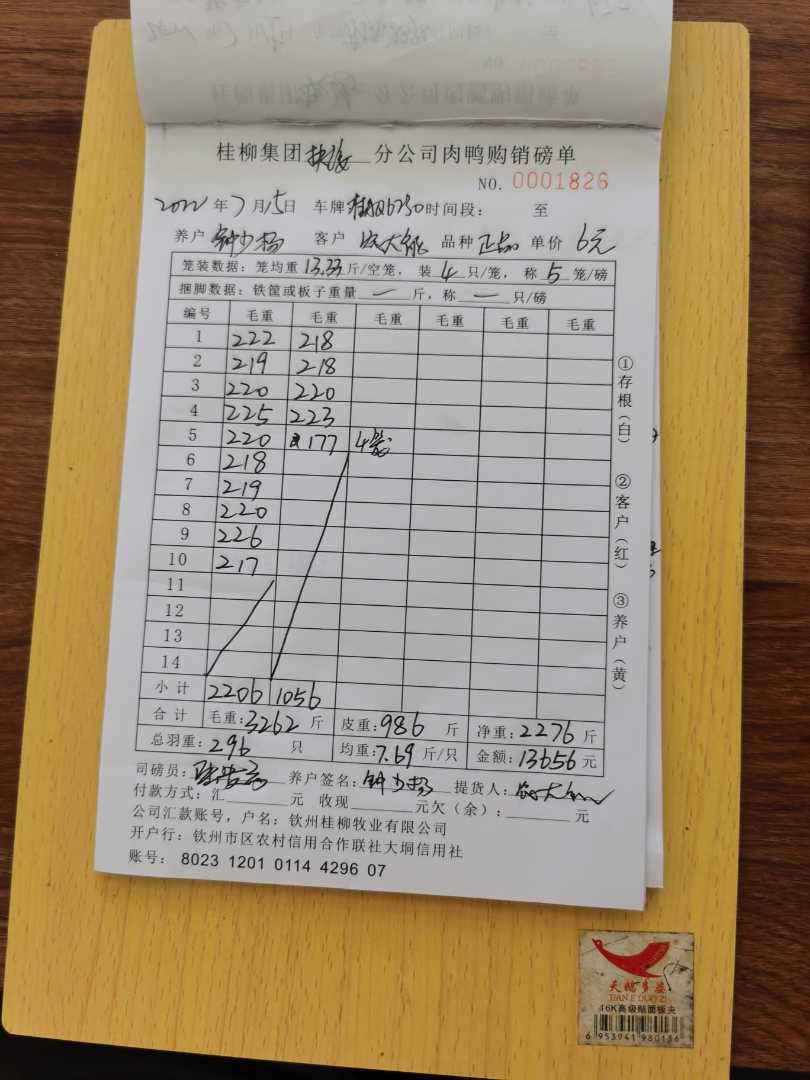 桂柳集团 分公司肉鸭购销磅单
NO. 0001826
2022年7月15日 车牌 桂 6250 时间段: 至
养户 钟少杨 客户 品种 正品 单价 6元
笼装数据: 笼均重 13.33 斤/空笼, 装 4 只/笼, 称 5 笼/磅
捆脚数据: 铁筐或板子重量 — 斤, 称 — 只/磅
编号 毛重 毛重 毛重 毛重 毛重 毛重
1 222 218
2 219 218
3 220 220
4 225 223
5 220 177 4笼
6 218
7 219
8 220
9 226
10 217
11
12
13
14
小计 2206 1056
合计 毛重:3262 斤 皮重:986 斤 净重:2276 斤
总羽重:296 只 均重:7.69 斤/只 金额:13656 元
司磅员: 养户签名: 钟少杨 提货人:
付款方式: 汇 元 收现 元欠(余): 元
公司汇款账号, 户名: 钦州桂柳牧业有限公司
开户行: 钦州市区农村信用合作联社大垌信用社
账号: 8023 1201 0114 4296 07
①存根(白)
②客户(红)
③养户(黄)
天鹅多姿
TIAN E DUO ZI
16K高级贴面板夹
6 953941 980136